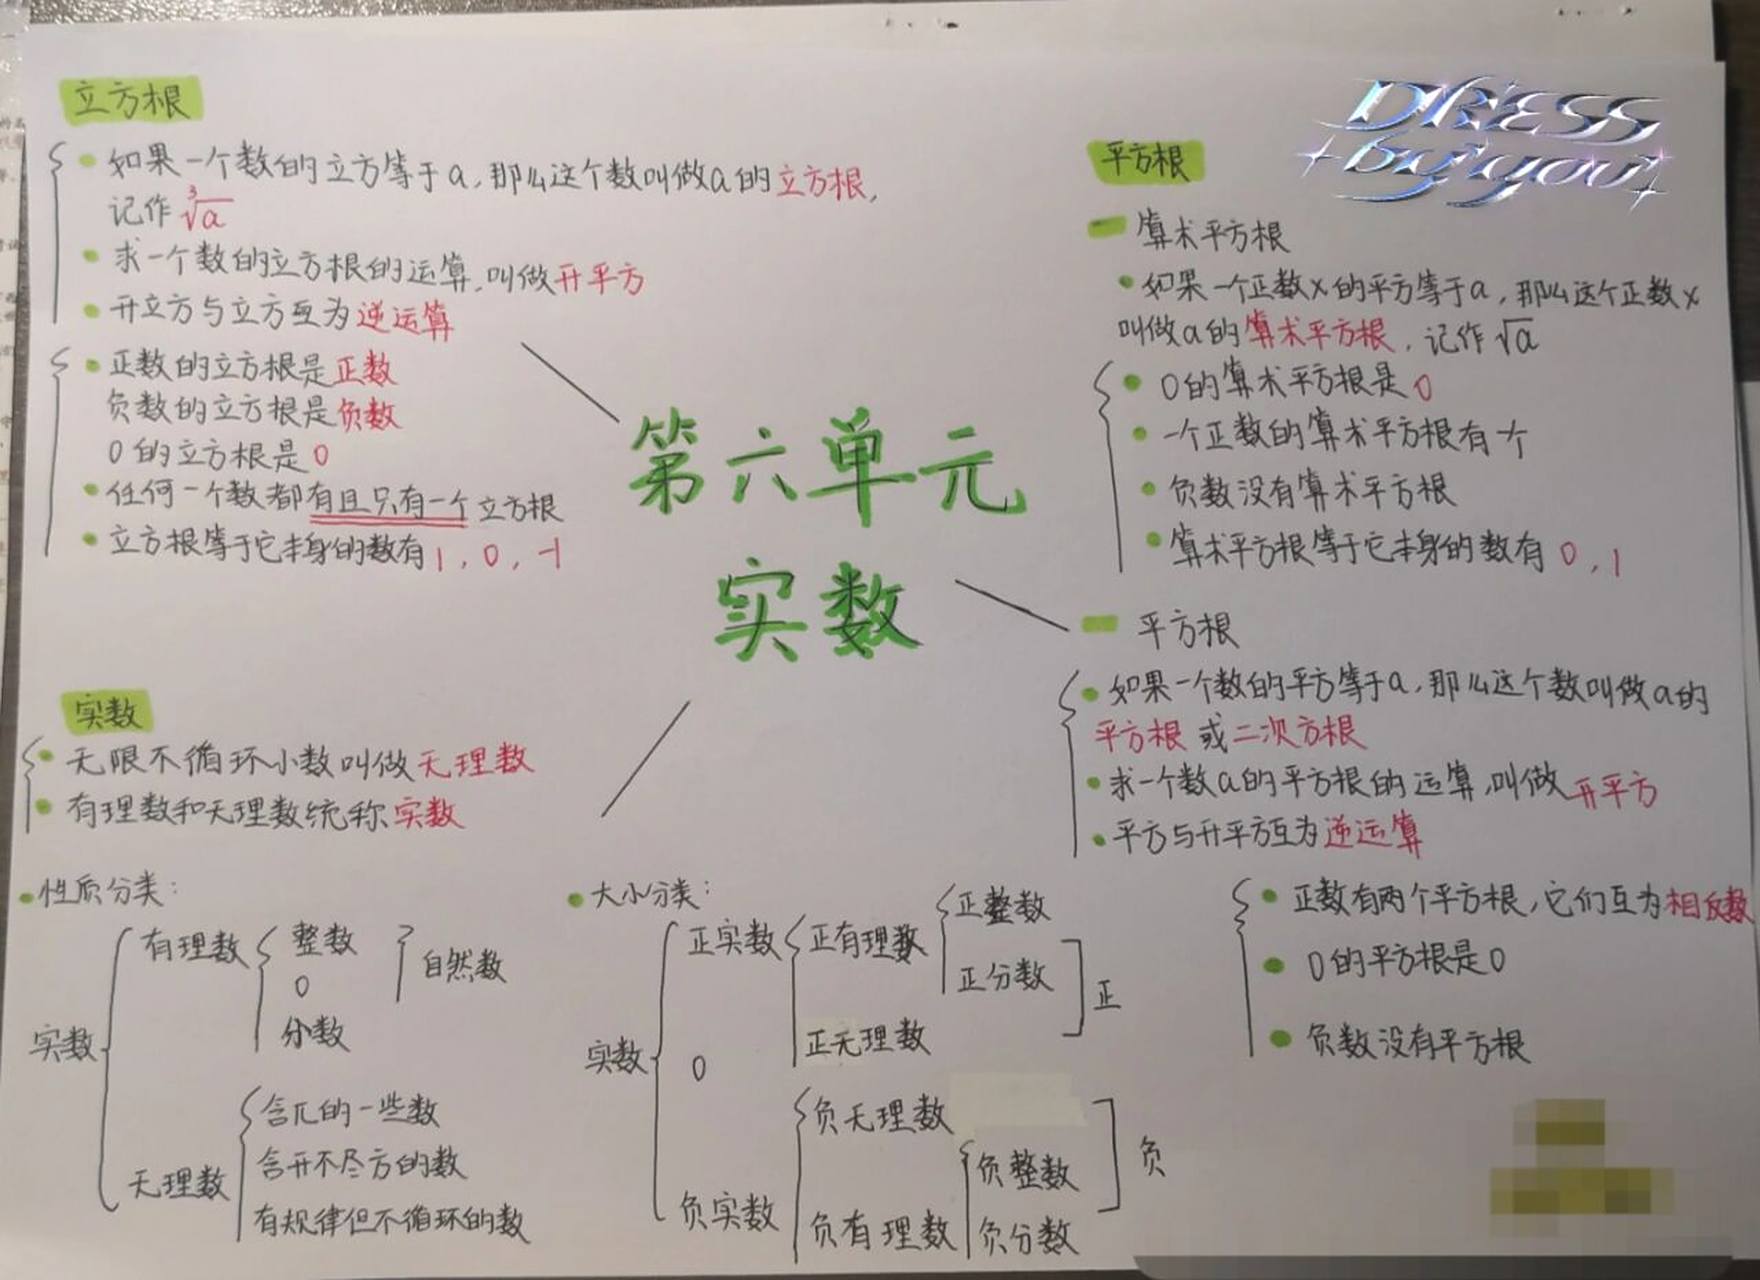 立方根
如果一个数的立方等于a,那么这个数叫做a的立方根,
记作 ∛a
求一个数的立方根的运算,叫做开平方
开立方与立方互为逆运算
正数的立方根是正数
负数的立方根是负数
0的立方根是0
任何一个数都有且只有一个立方根
立方根等于它本身的数有1,0,-1
DRESS
by you
平方根
算术平方根
如果一个正数x的平方等于a,那么这个正数x
叫做a的算术平方根,记作√a
0的算术平方根是0
一个正数的算术平方根有一个
负数没有算术平方根
算术平方根等于它本身的数有0,1
第六单元
实数
平方根
如果一个数的平方等于a,那么这个数叫做a的
平方根或二次方根
求一个数a的平方根的运算,叫做开平方
平方与开平方互为逆运算
正数有两个平方根,它们互为相反数
0的平方根是0
负数没有平方根
实数
无限不循环小数叫做无理数
有理数和无理数统称实数
性质分类:
实数
有理数
整数
0
分数
自然数
无理数
含π的一些数
含开不尽方的数
有规律但不循环的数
大小分类:
实数
正实数
正有理数
正整数
正分数
正无理数
正
0
负实数
负无理数
负有理数
负整数
负分数
负